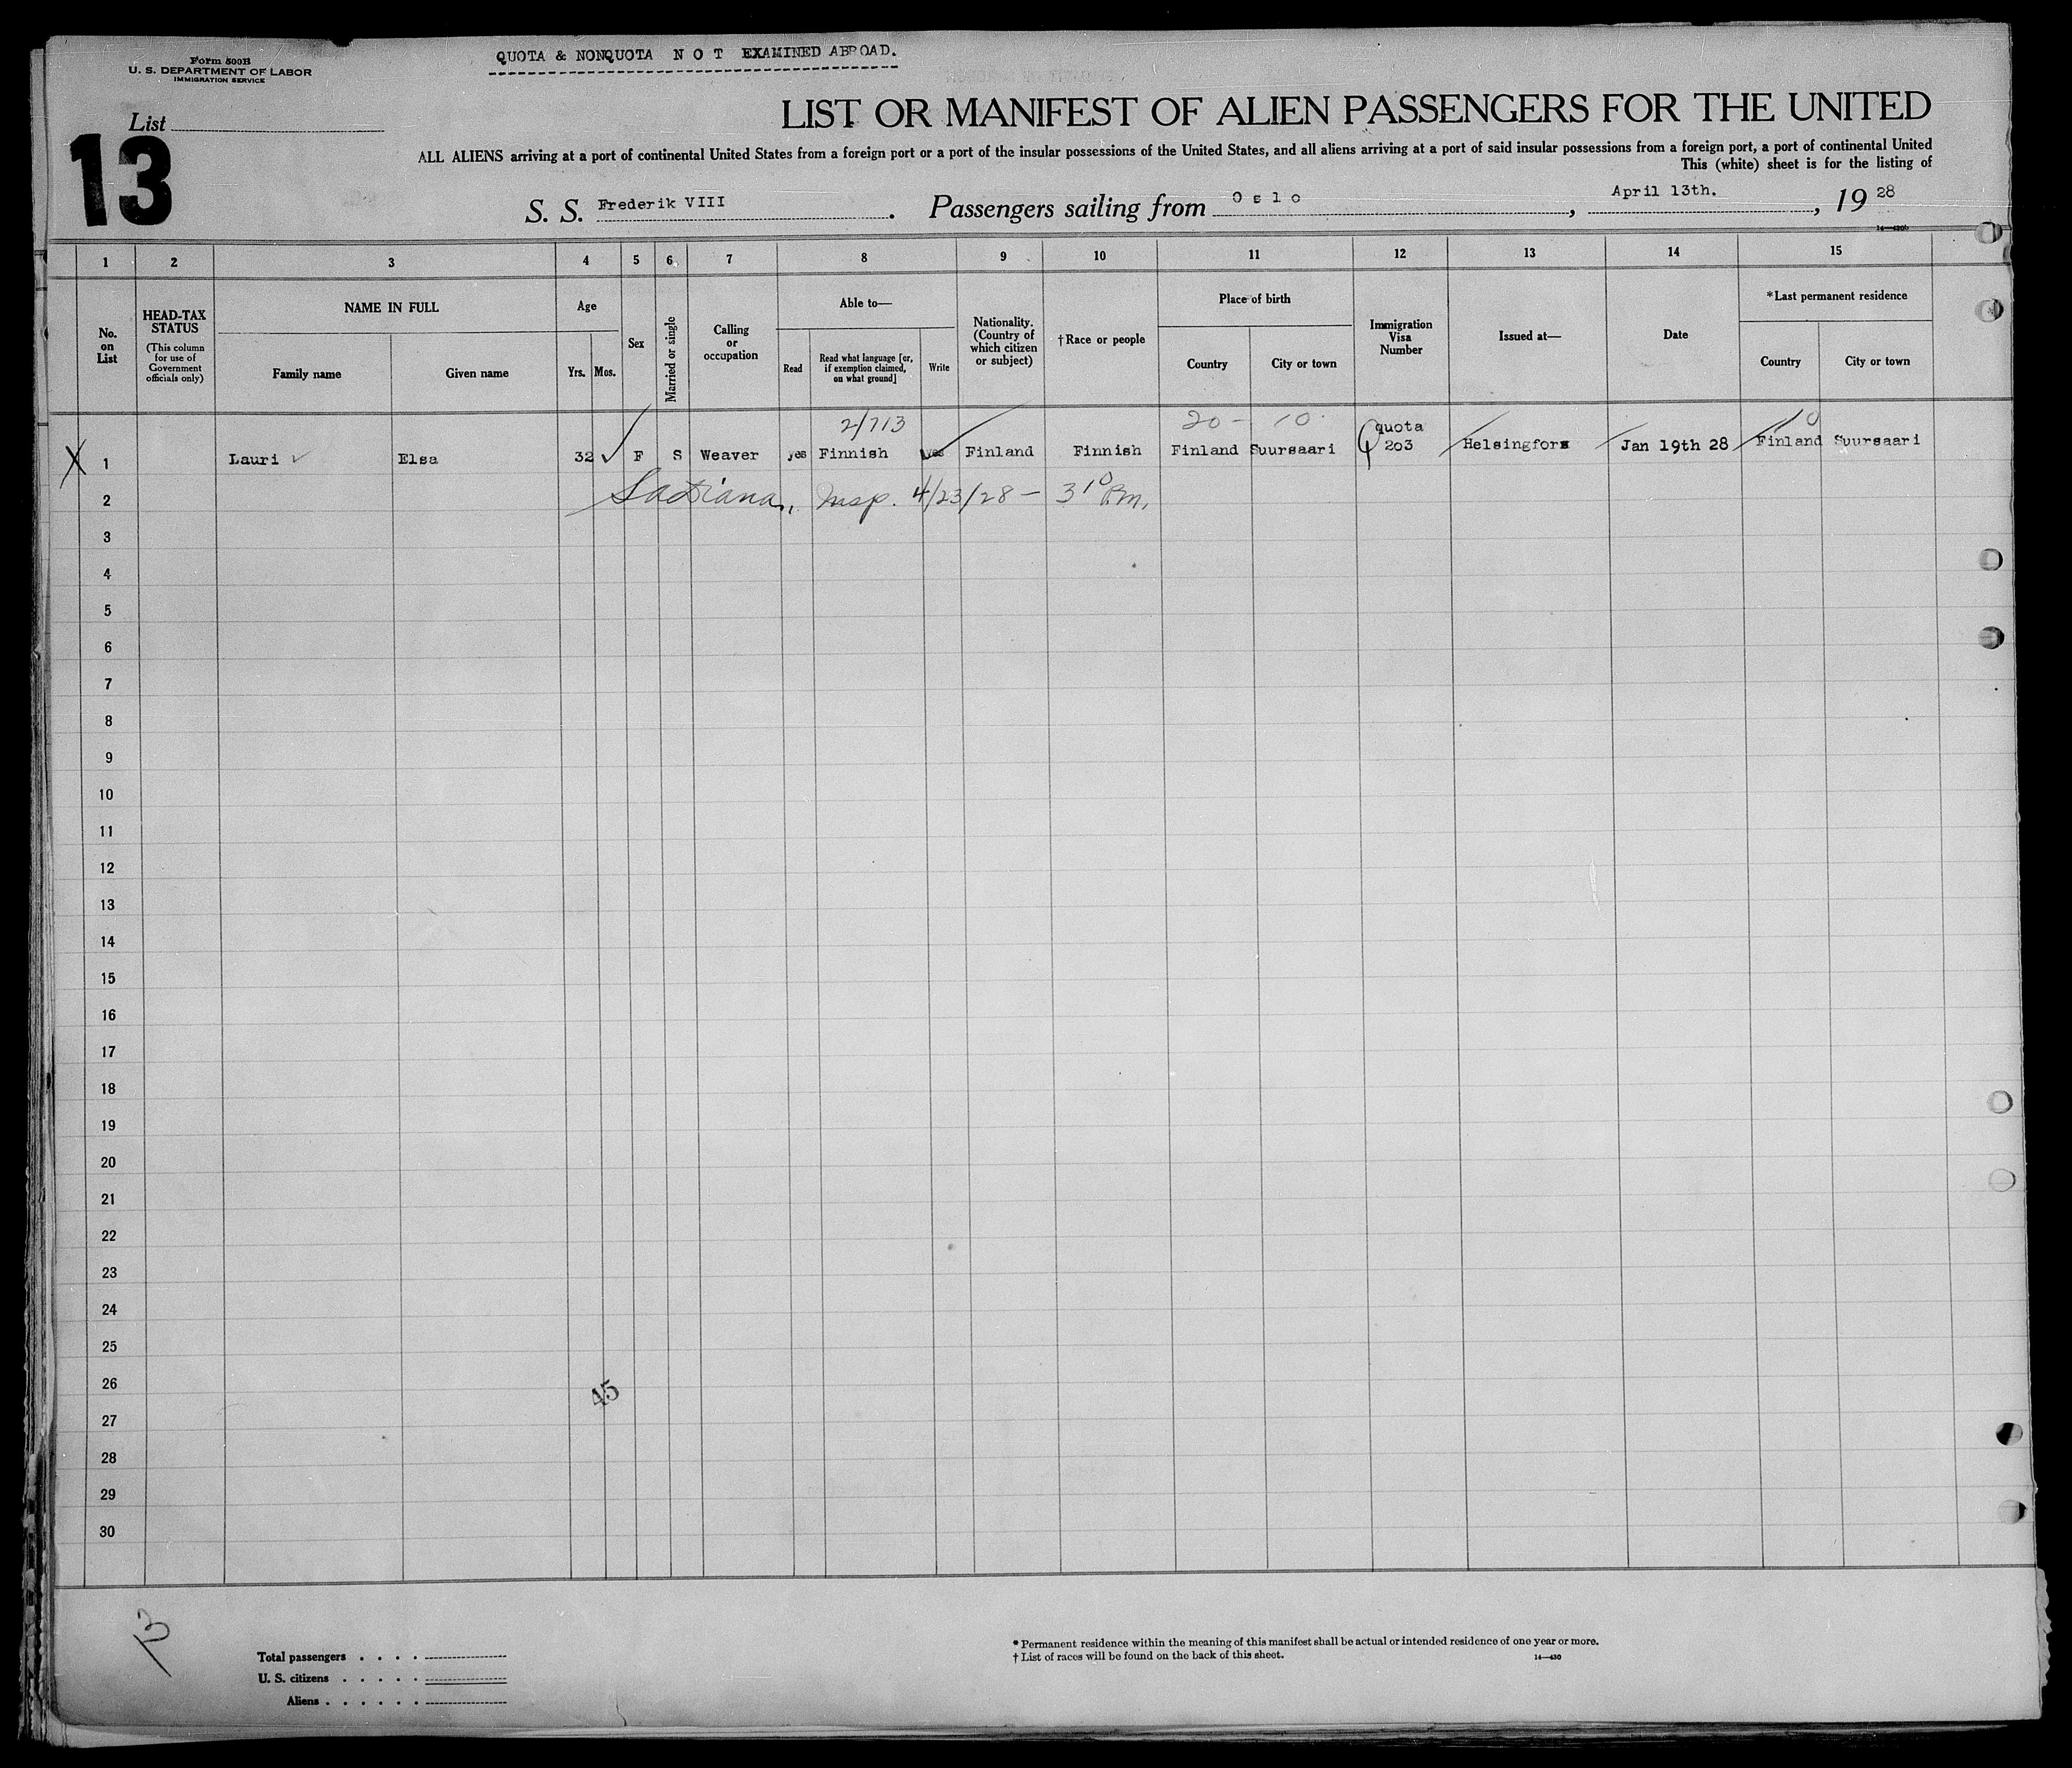 Form 500B
U. S. DEPARTMENT OF LABOR
IMMIGRATION SERVICE
QUOTA & NONQUOTA N O T EXAMINED ABROAD.
List
13
LIST OR MANIFEST OF ALIEN PASSENGERS FOR THE UNITED
ALL ALIENS arriving at a port of continental United States from a foreign port or a port of the insular possessions of the United States, and all aliens arriving at a port of said insular possessions from a foreign port, a port of continental United
This (white) sheet is for the listing of
S. S. Frederik VIII. Passengers sailing from Oslo, April 13th., 19 28
1 2 3 4 5 6 7 8 9 10 11 12 13 14 15
No. on List
HEAD-TAX STATUS
(This column for use of Government officials only)
NAME IN FULL
Family name
Given name
Age
Yrs. Mos.
Sex
Married or single
Calling or occupation
Able to—
Read
Read what language [or, if exemption claimed, on what ground]
Write
Nationality. (Country of which citizen or subject)
†Race or people
Place of birth
Country
City or town
Immigration Visa Number
Issued at—
Date
*Last permanent residence
Country
City or town
2/713 20 - 10 10
1 Lauri Elsa 32 F S Weaver yes Finnish yes Finland Finnish Finland Suursaari quota 203 Helsingfors Jan 19th 28 Finland Suursaari
2 Insp. 4/23/28 - 3 10 P.m.
3
4
5
6
7
8
9
10
11
12
13
14
15
16
17
18
19
20
21
22
23
24
25
26
45
27
28
29
30
13
Total passengers
U. S. citizens
Aliens
* Permanent residence within the meaning of this manifest shall be actual or intended residence of one year or more.
† List of races will be found on the back of this sheet.
14—430